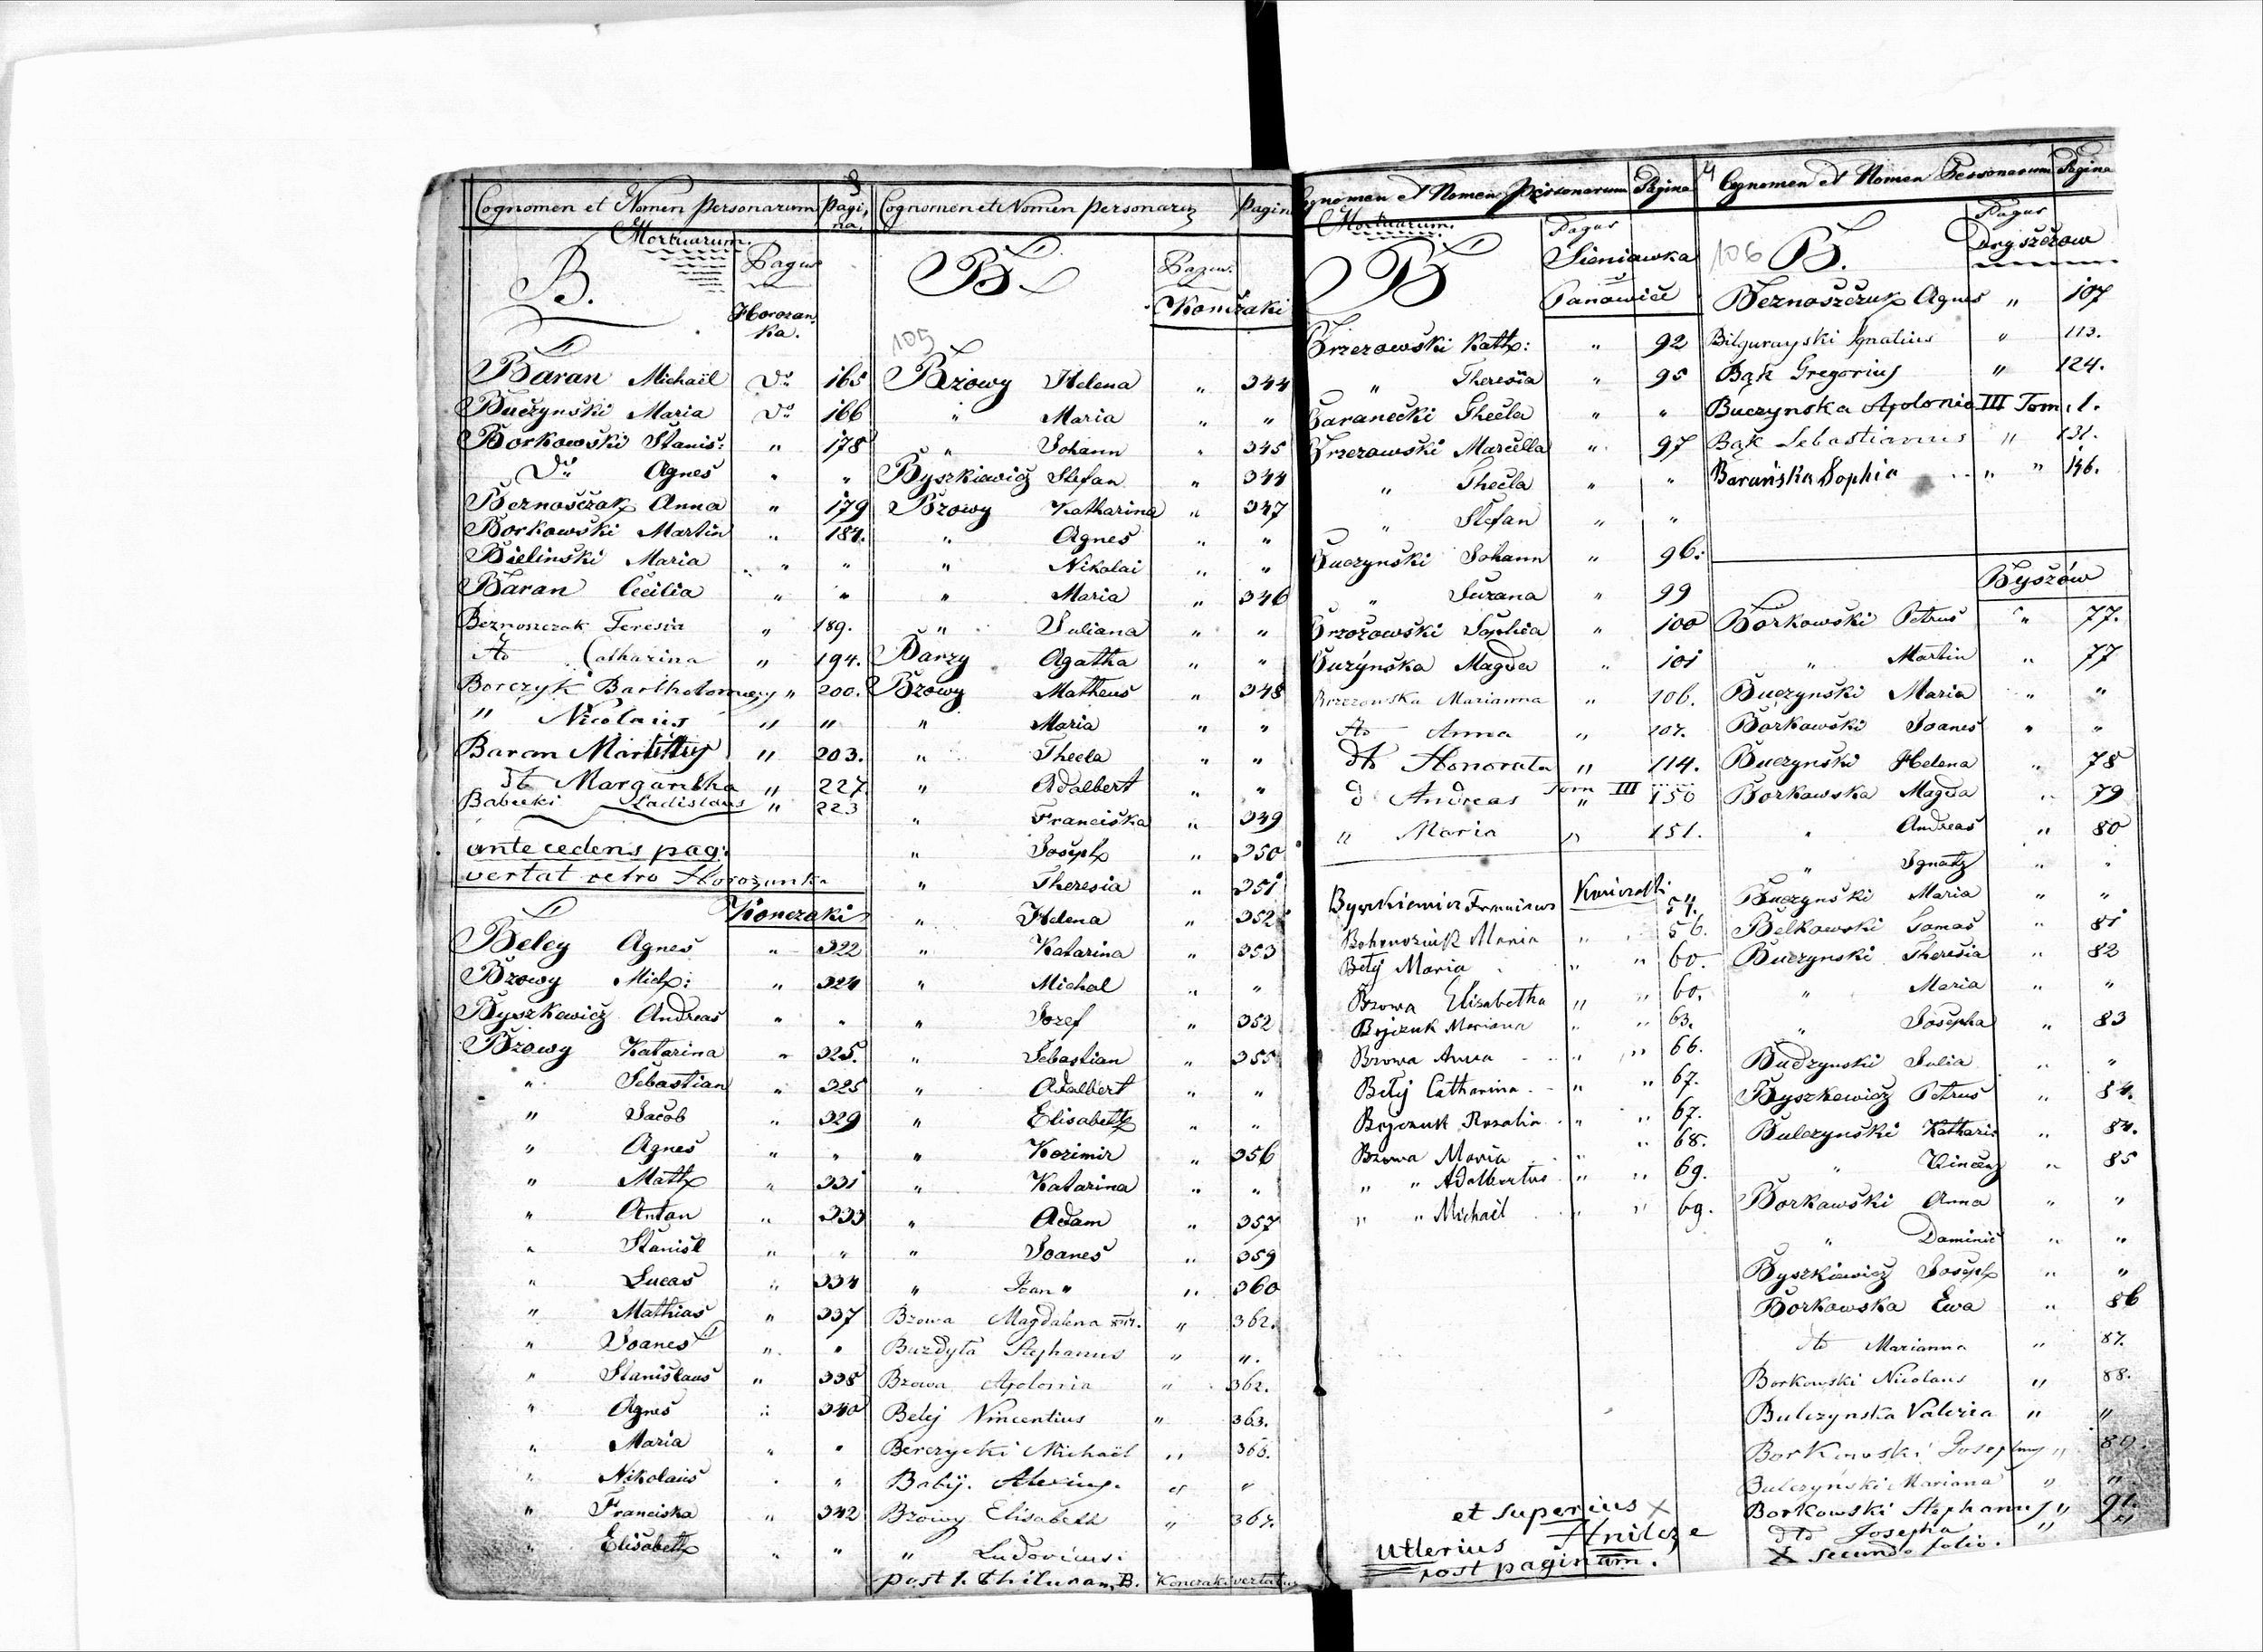 Cognomen et Nomen personarum Pagina
Mortuarum.
B. Pagus
Horozanka.
Baran Michaël Do 165
Buczynski Maria Do 166
Borkowski Stanis: " 178
Do Agnes " "
Beznosczak Anna " 179
Borkowski Martin " 184.
Bielinski Maria " "
Baran Cecilia " "
Beznoszczak Teresia " 189.
dto Catharina " 194.
Borczyk Bartholomaeus " 200.
" Nicolaus " "
Baran " 203.
dto Margaretha " 227
Babecki Ladislaus " 223
antecedens pag:
vertat retro Horozanka
Konczaki
Beley Agnes " 322
Bzowy Mich: " 324
Byszkewicz Andreas " "
Bzowy Katarina " 325.
" Sebastian " 325
" Jacob " 329
" Agnes " "
" Math " 331
" Antan " 333
" Stanisl " "
" Lucas " 334
" Mathias " 337
" Joanes " "
" Stanislaus " 338
" Agnes " 340
" Maria " "
" Nikolaus " "
" Franciska " 342
" Elisabeth " "
Cognomen et Nomen personarum Pagin
B. Pagus.
Konczaki
105
Bzowy Helena " 344
" Maria " "
" Johann " 345
Byszkiewicz Stefan " 344
Bzowy Katharina " 347
" Agnes " "
" Nikolai " "
" Maria " 346
" Juliana " "
Barzy Agatha " "
Bzowy Matheus " 348
" Maria " "
" Thecla " "
" Adalbert " "
" Franciska " 349
" Joseph " 350
" Theresia " 351
" Helena " 352
" Katarina " 353
" Michal " "
" Jozef " 352
" Sebastian " 355
" Adalbert " "
" Elisabeth " "
" Kozimir " 356
" Katarina " "
" Adam " 357
" Joanes " 359
" Joan " " 360
Bzowa Magdalena " 362.
Buzdyla Stephanus " ".
Bzowa Apolonia " 362.
Belej Vincentius " 363.
Berczycki Michaël " 366.
Babij. Alexius. " "
Bzowy Elisabeth " 367.
" Ludovicus.
post B. Konczaki vertatur
Cognomen et Nomen Personarum Pagina
Mortuarum.
B Pagus
Sieniawka
Panowice
Brzezowski Kath: " 92
" Theresia " 95
Baranecki Thecla " "
Brzezowski Marcella " 97
" Thecla " "
" Stefan " "
Buczynski Johann " 96.
" Suzana " 99
Brzozowski Sophia " 100
Buzynska Magda " 101
Brzezowska Marianna " 106.
dto Anna " 107.
dto Honorata " 114.
d Andreas Tom III " 150
" Maria " 151.
Konczaki
Byszkiewicz Franciscus 54.
Maria " " 56.
Belij Maria " " 60.
Bzowa Elisabetha " " 60.
Bojczuk Mariana " " 63.
Bzowa Anna " " 66.
Belij Catharina " " 67.
Bojczuk Rosalia " 67.
Bzowa Maria " " 68.
" " Adalbertus " " 69.
" " Michaël " " 69.
et superius X
Utlerius Hnilcze
post paginam.
4 Cognomen et Nomen Personarum Pagina
106 B. Pagus
Dryszczow
Beznoszczuk Agnes " 107
Bilgurayski Ignatius " 113.
Bąk Gregorius " 124.
Buczynska Apolonia III Tom. 1.
Bąk Sebastianus " 131.
Barańska Sophia " " 146.
Byszów
Borkowski Petrus " 77.
" Martin " 77
Buczynski Maria " "
Borkowski Joanes " "
Buczynski Helena " 78
Borkowska Magda " 79
" Andreas " 80
" Ignatz " "
Buczynski Maria " "
Belkowski Tomas " 81
Buczynski Theresia " 82
" Maria " "
" Josepha " 83
Budzynski Julia " "
Byszkewicz Petrus " 84.
Bulczynski Kathari " 84.
" Vincenz " 85
Borkowski Anna " "
" Dominic " "
Byszkiewicz Joseph " "
Borkowska Ewa " 86
dto Marianna " 87.
Borkowski Nicolaus " 88.
Bulczynska Valeria " "
Borkowski Josephus " 89.
Bulczyński Mariana " "
Borkowski Stephanus " 91.
dto Josepha " "
X secundo folio.